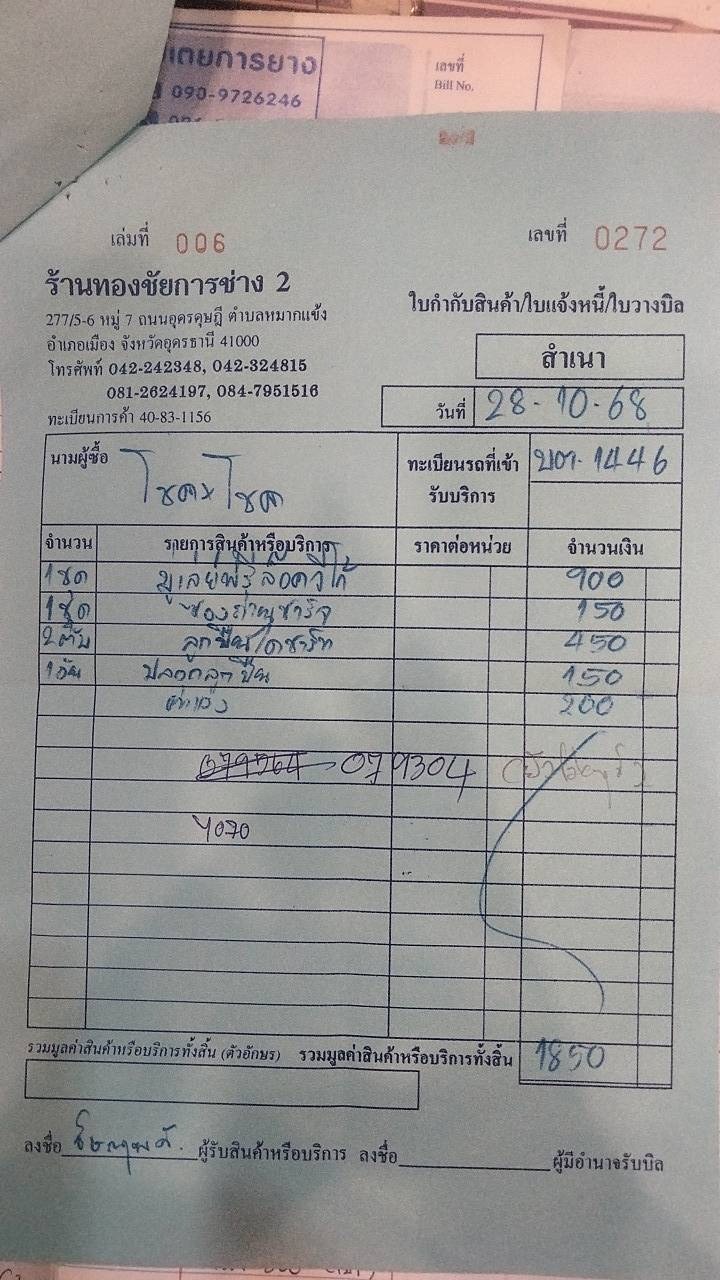 เตยการยาง
090-9726246
เลขที่
Bill No.
เล่มที่ 006
เลขที่ 0272
ร้านทองชัยการช่าง 2
277/5-6 หมู่ 7 ถนนอุดรดุษฎี ตำบลหมากแข้ง
อำเภอเมือง จังหวัดอุดรธานี 41000
โทรศัพท์ 042-242348, 042-324815
081-2624197, 084-7951516
ทะเบียนการค้า 40-83-1156
ใบกำกับสินค้า/ใบแจ้งหนี้/ใบวางบิล
สำเนา
วันที่ 28-10-68
นามผู้ซื้อ
ทะเบียนรถที่เข้ารับบริการ 1446
จำนวน รายการสินค้าหรือบริการ ราคาต่อหน่วย จำนวนเงิน
1ชุด 900
1ชุด 150
2ตับ 450
1อัน ปลอกลูกปืน 150
ค่าแรง 200
079304
4070
รวมมูลค่าสินค้าหรือบริการทั้งสิ้น (ตัวอักษร) รวมมูลค่าสินค้าหรือบริการทั้งสิ้น 1850
ลงชื่อ ผู้รับสินค้าหรือบริการ ลงชื่อ ผู้มีอำนาจรับบิล